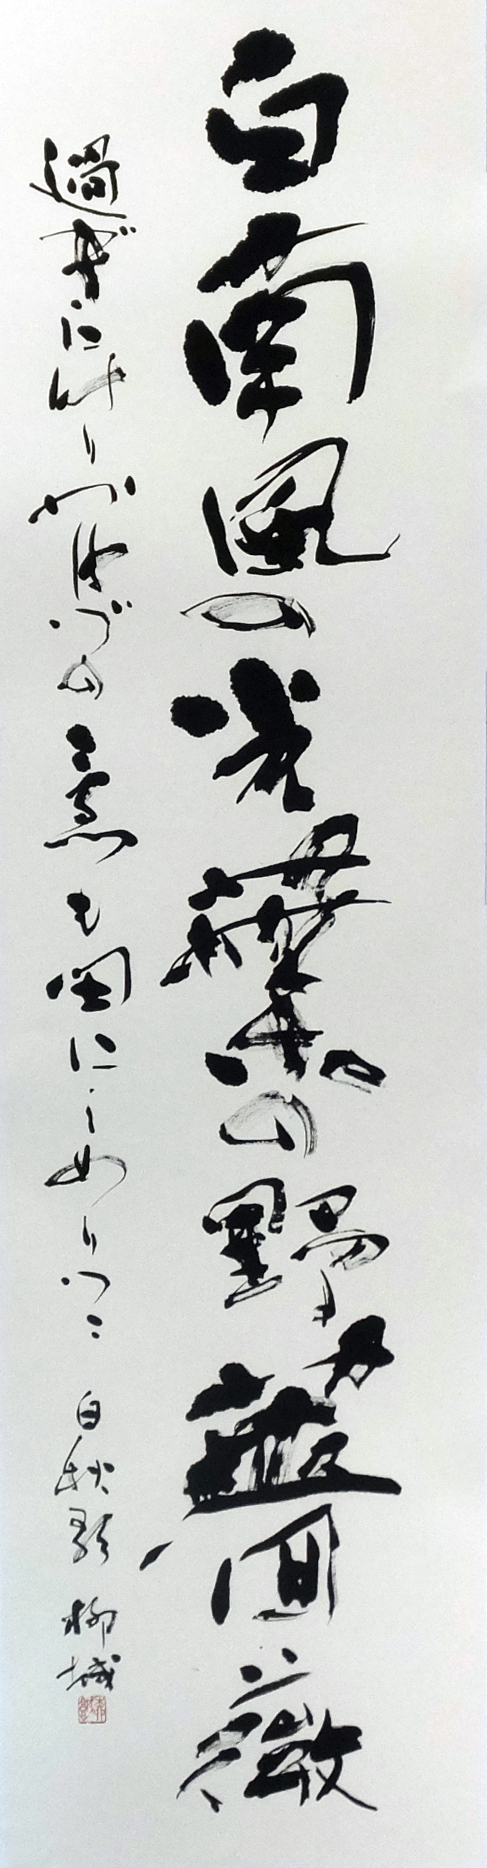 白南風の光葉の野薔薇
過ぎにけりかはづのこゑも田にしめりつつ 白秋歌 柳城